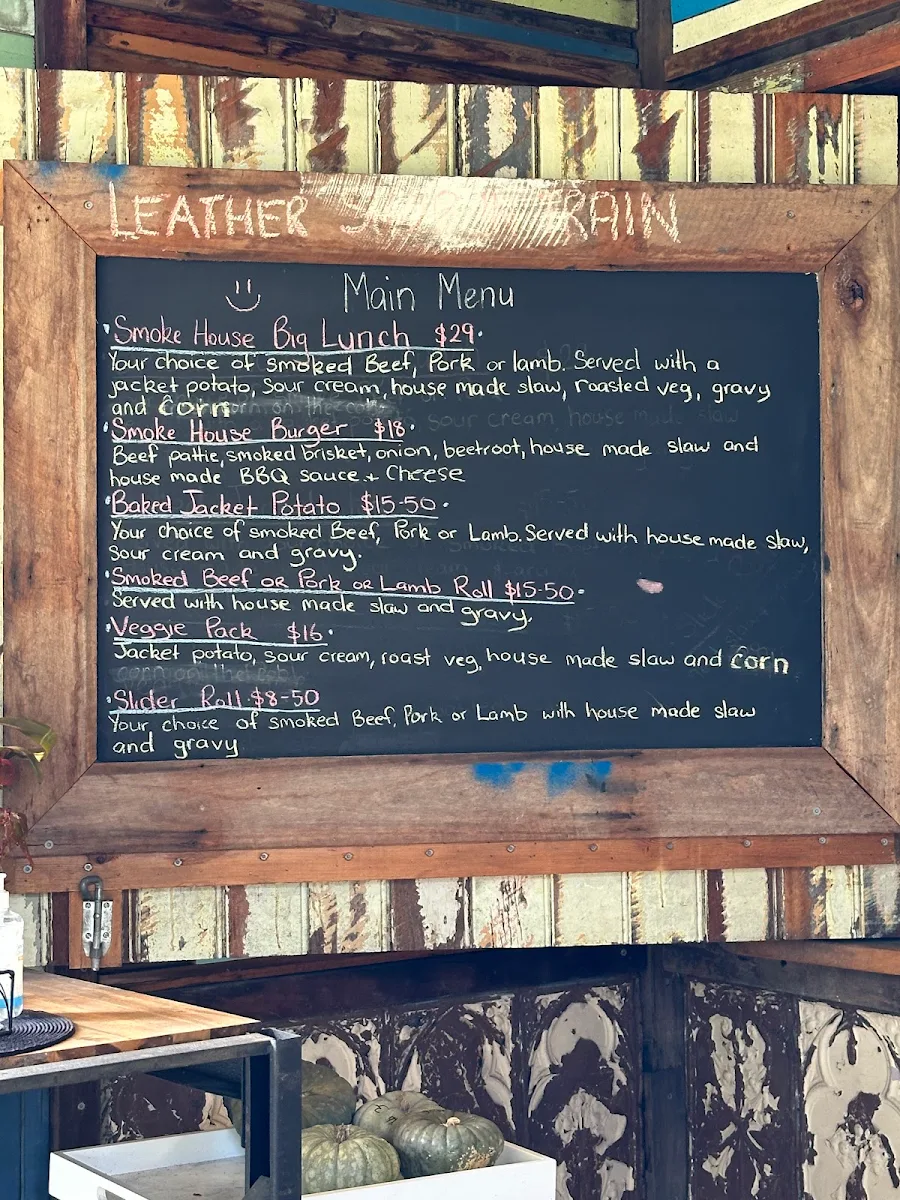 LEATHER RAIN
Main Menu
•Smoke House Big Lunch $29•
Your choice of smoked Beef, Pork or lamb. Served with a
jacket potato, sour cream, house made slaw, roasted veg, gravy
and Corn
•Smoke House Burger $18•
Beef pattie, smoked brisket, onion, beetroot, house made slaw and
house made BBQ sauce + Cheese
•Baked Jacket Potato $15-50•
Your choice of smoked Beef, Pork or Lamb. Served with house made slaw,
Sour cream and gravy.
•Smoked Beef or Pork or Lamb Roll $15-50•
Served with house made slaw and gravy.
•Veggie Pack $16•
Jacket potato, sour cream, roast veg, house made slaw and corn
•Slider Roll $8-50
Your choice of smoked Beef, Pork or Lamb with house made slaw
and gravy